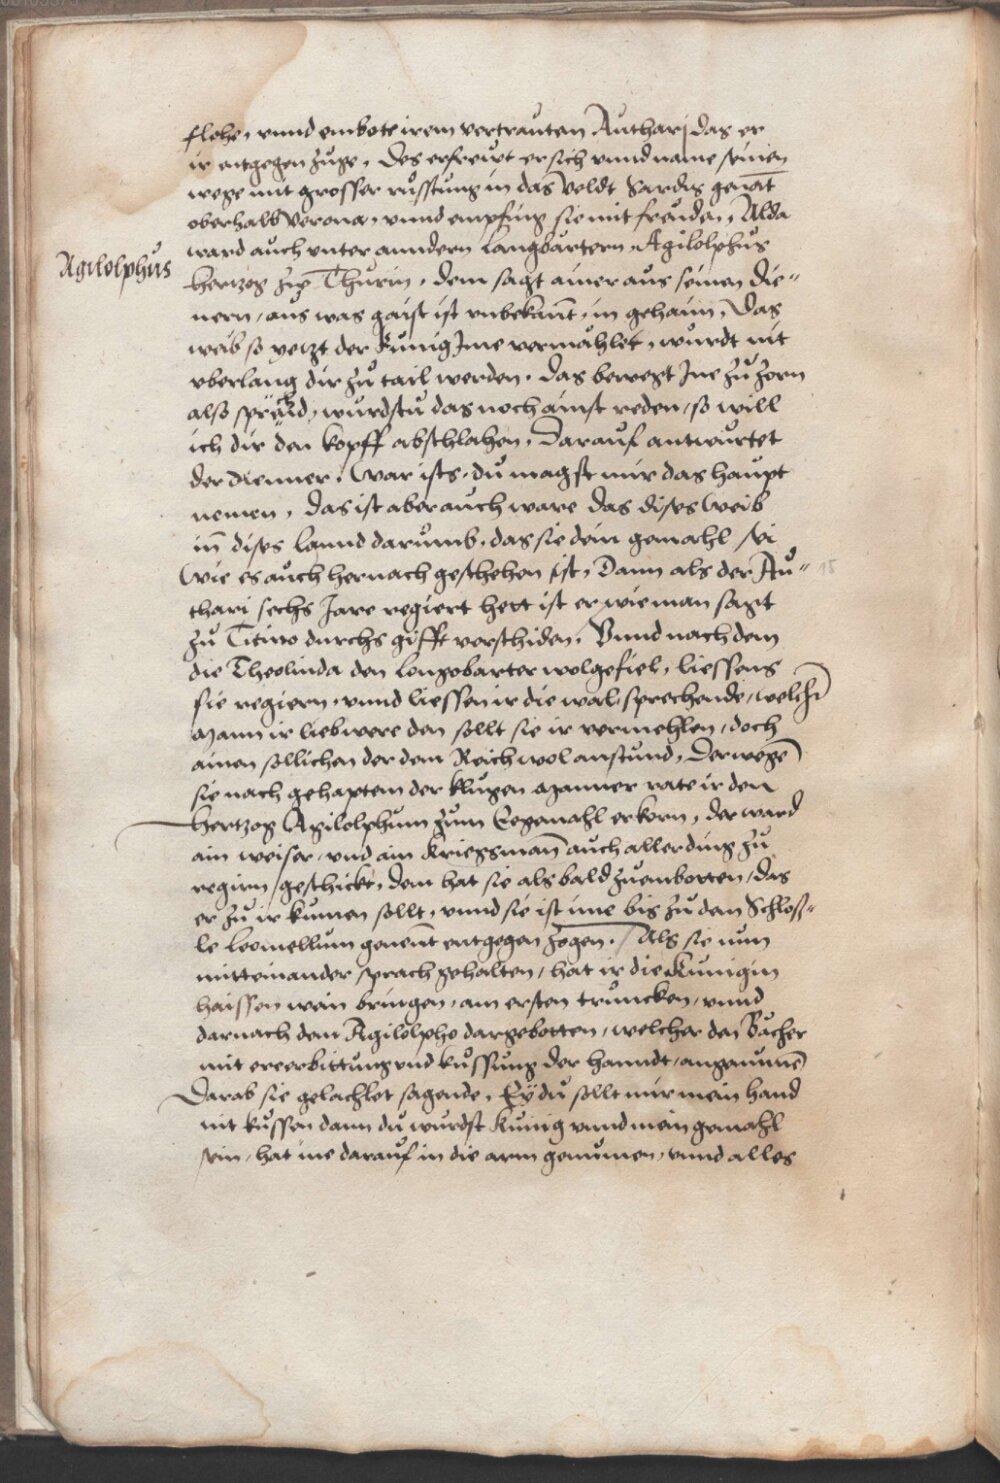 flohe, vnnd embote irem vertrauten Authari das er
ir entgegen zuge. Des erfreut er sich vnnd name seinen
wege mit grosser russtung in das Veldt Sardis genāt
oberhalb Verona, vnnd empfing sie mit freuden, Alda
ward auch vnter anndern Langbartern Agilolphus
Agilolphus
Hertzog zu Thurin, dem sagt ainer aus seinen die-
nern, aus was gaist ist vnbekannt, in gehaim, Das
weib so yetzt der Kunig Ime vermahlet, wurdt nit
vberlang dir zu tail werden. Das bewegt Ine zu zorn
also sprechend, wurdstu das noch ainst reden, so will
ich dir den kopff abschlahen, Darauf antwurtet
der dienner, War ists, du magst mir das haupt
nemen, das ist aber auch ware das dises Weib
in dises lannd darumb, das sie dein gemahl sei
Wie es auch hernach geschehen ist, Dann als der Au-
thari sechs Jare regiert hett ist er wie man sagt
zu Ticino durchs gifft verschiden, Vnnd nach dem
die Theolinda den Longobarter wolgefiel, liessens
sie regiern, vnnd liessen ir die wal, sprechende, welchē
Mann ir lieb were den sollt sie ir vermehlen, doch
ainen sollichen der dem Reich wol anstund, Derwegē
sie nach gehaptem der klugen Manner rate ir den
Hertzog Agilolphum zum Eegemahl erkorn, der ward
ain weiser, vnd ain Kriegsman auch allerding zu
regirn geschickt, dem hat sie als bald zuembotten, das
er zu ir kumen sollt, vnnd sie ist ime bis zu dem Schloss-
le Leomellum genent entgegen zogen. Als sie nun
mitteinander sprach gehalten, hat ir die Kunigin
haissen wein bringen, am ersten truncken, vnnd
darnach dem Agilolpho dargebotten, welcher den Bacher
mit ererbittung vnd kussung der hanndt, angenumē
Darab sie gelachlet sagende, Ey du sollt mir mein hand
nit kussen dann du wurdst Kunig vnnd mein gemahl
sein, hat ine darauf in die arm genumen, vnnd alles